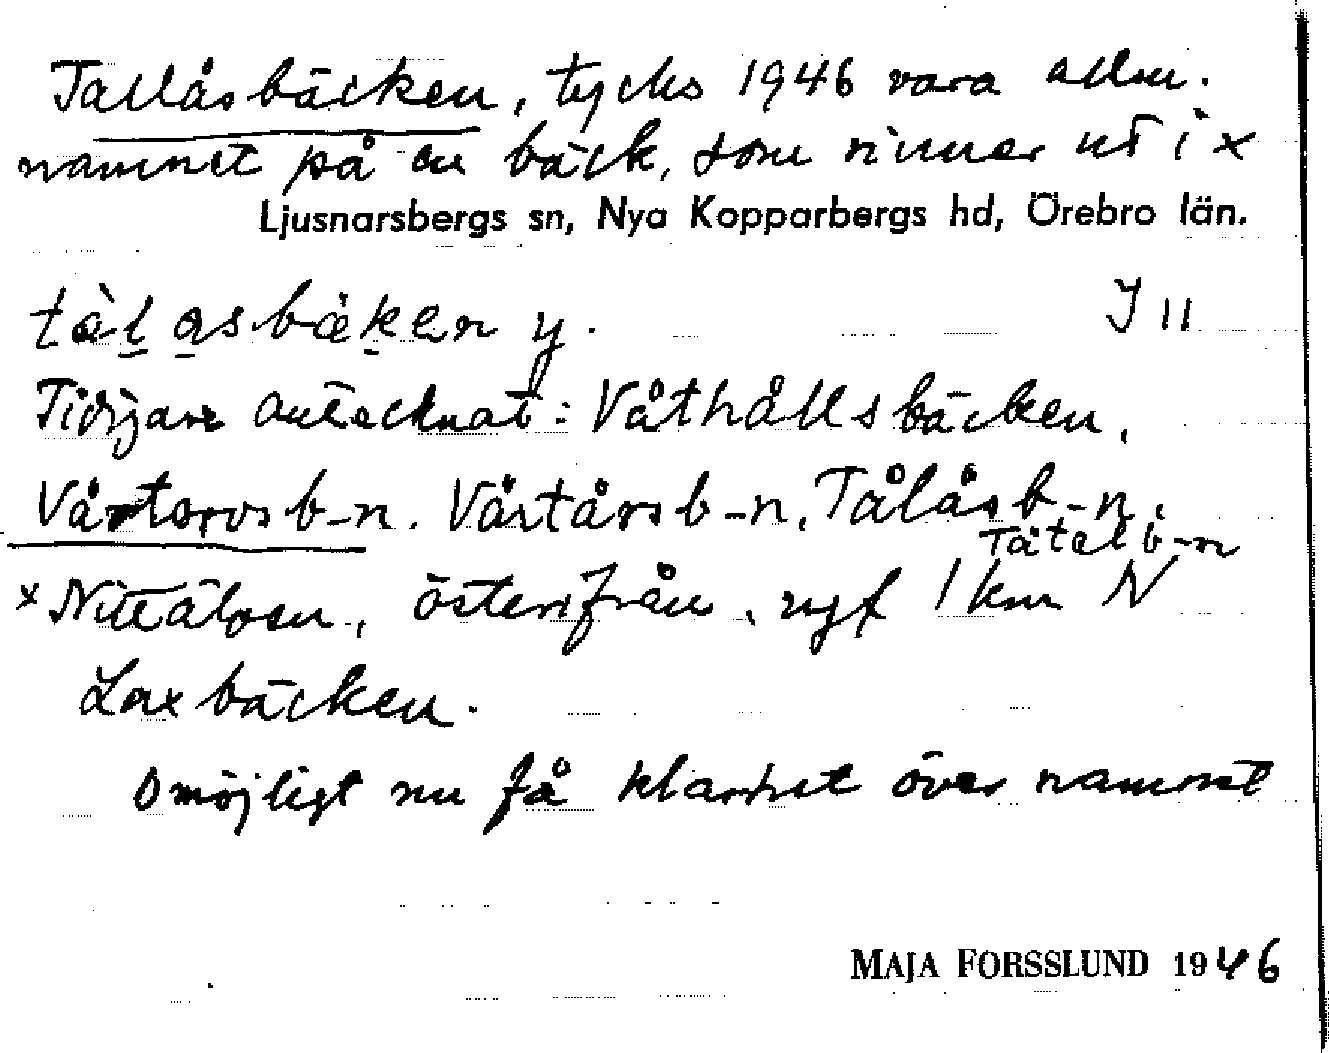 Tallåsbäcken, tycks 1946 vara allm.
namnet på en bäck, som rinner ut i x
Ljusnarsbergs sn, Nya Kopparbergs hd, Örebro län.
tàl̠a̠sbäk̠en y. J 11
Tidigare antecknat: Våthållsbäcken,
Vårtorosb-n. Vårtårsb-n, Tålåsb-n,
Tåtelb-n
x Nittälven, österifrån, ungf 1 km N
Laxbäcken.
Omöjligt nu få klarhet över namnet
MAJA FORSSLUND 1946